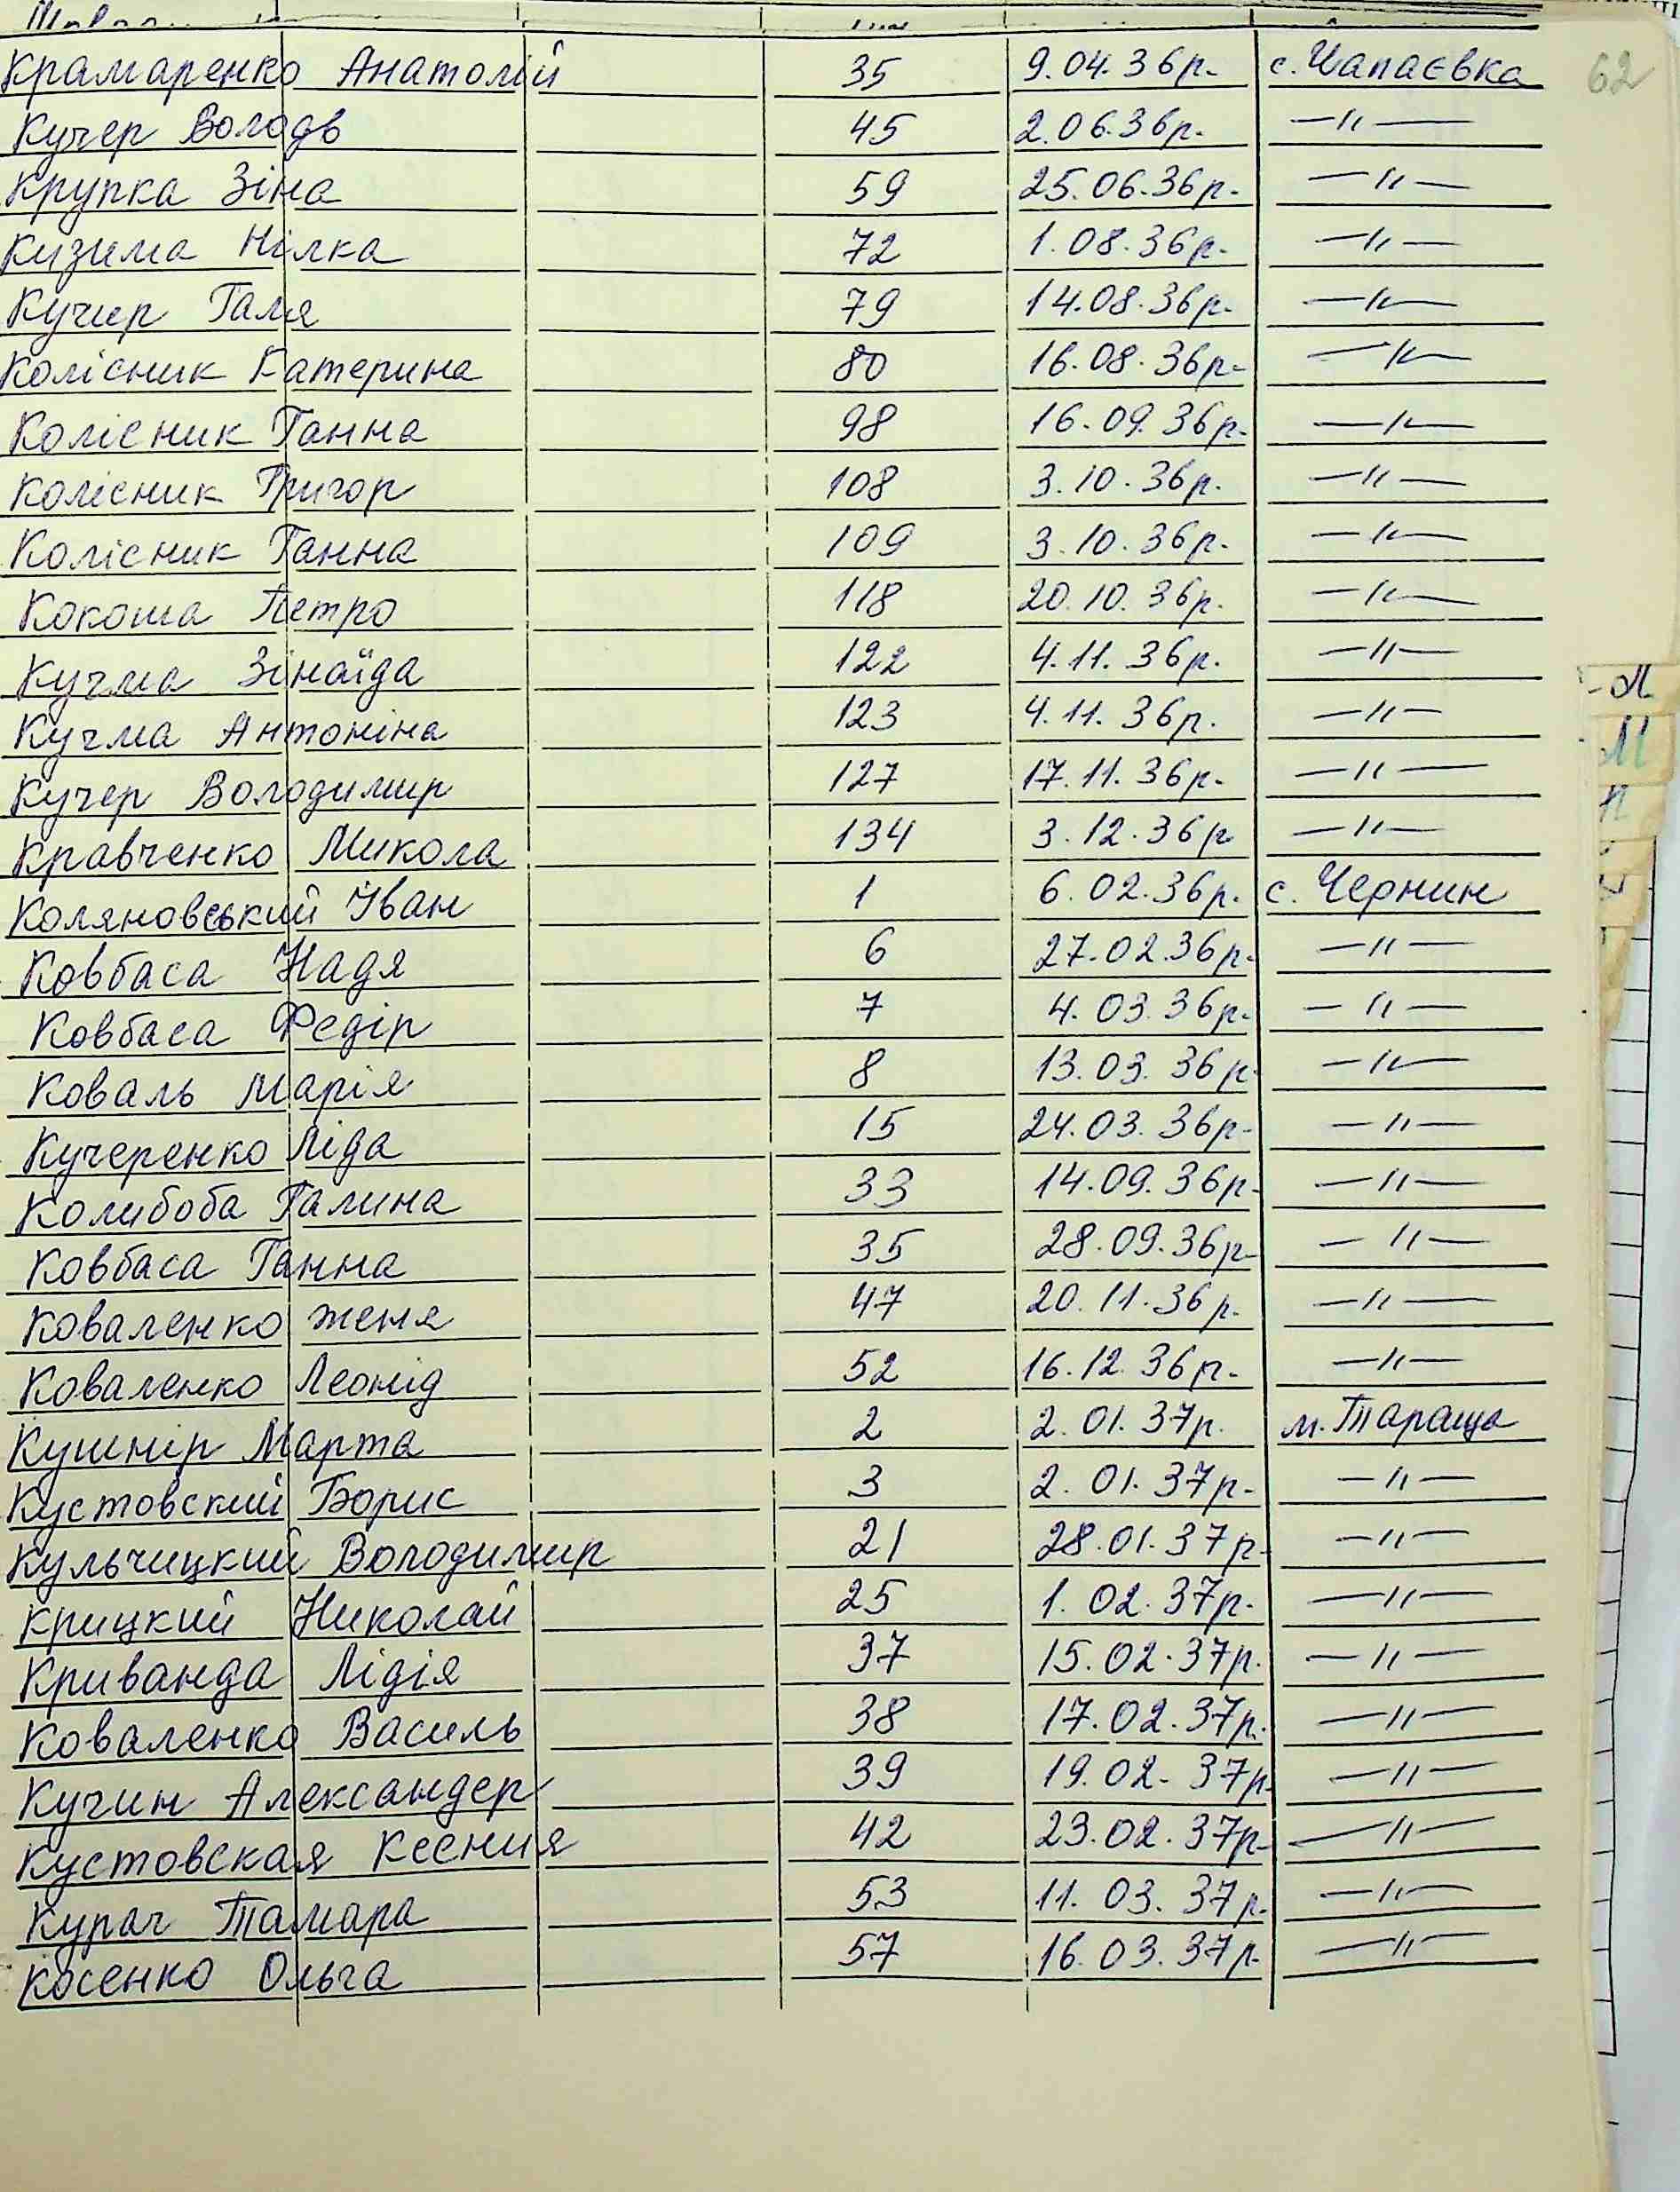 62
Крамаренко Анатолій 35 9.04.36р. с. Чапаєвка
Кучер Володв 45 2.06.36р. —"—
Крупка Зіна 59 25.06.36р. —"—
Кизима Нілка 72 1.08.36р. —"—
Кучир Галя 79 14.08.36р. —"—
Колісник Катерина 80 16.08.36р. —"—
Колісник Ганна 98 16.09.36р. —"—
Колісник Григор 108 3.10.36р. —"—
Колісник Ганна 109 3.10.36р. —"—
Кокоша Петро 118 20.10.36р. —"—
Кучма Зінаїда 122 4.11.36р. —"—
Кучма Антоніна 123 4.11.36р. —"—
Кучер Володимир 127 17.11.36р. —"—
Кравченко Микола 134 3.12.36р —"—
Коляновський Іван 1 6.02.36р. с. Чернин
Ковбаса Надя 6 27.02.36р. —"—
Ковбаса Федір 7 4.03.36р. —"—
Коваль Марія 8 13.03.36р —"—
Кучеренко Ліда 15 24.03.36р. —"—
Колибоба Галина 33 14.09.36р. —"—
Ковбаса Ганна 35 28.09.36р. —"—
Коваленко женя 47 20.11.36р. —"—
Коваленко Леонід 52 16.12.36р. —"—
Кушнір Марта 2 2.01.37р. м. Тараща
Кустовский Борис 3 2.01.37р. —"—
Кульчицкий Володимир 21 28.01.37р. —"—
Крицкий Николай 25 1.02.37р. —"—
Криванда Лідія 37 15.02.37р. —"—
Коваленко Василь 38 17.02.37р. —"—
Кучин Александер 39 19.02.37р. —"—
Кустовская Ксения 42 23.02.37р. —"—
Курач Тамара 53 11.03.37р. —"—
Косенко Ольга 57 16.03.37р. —"—